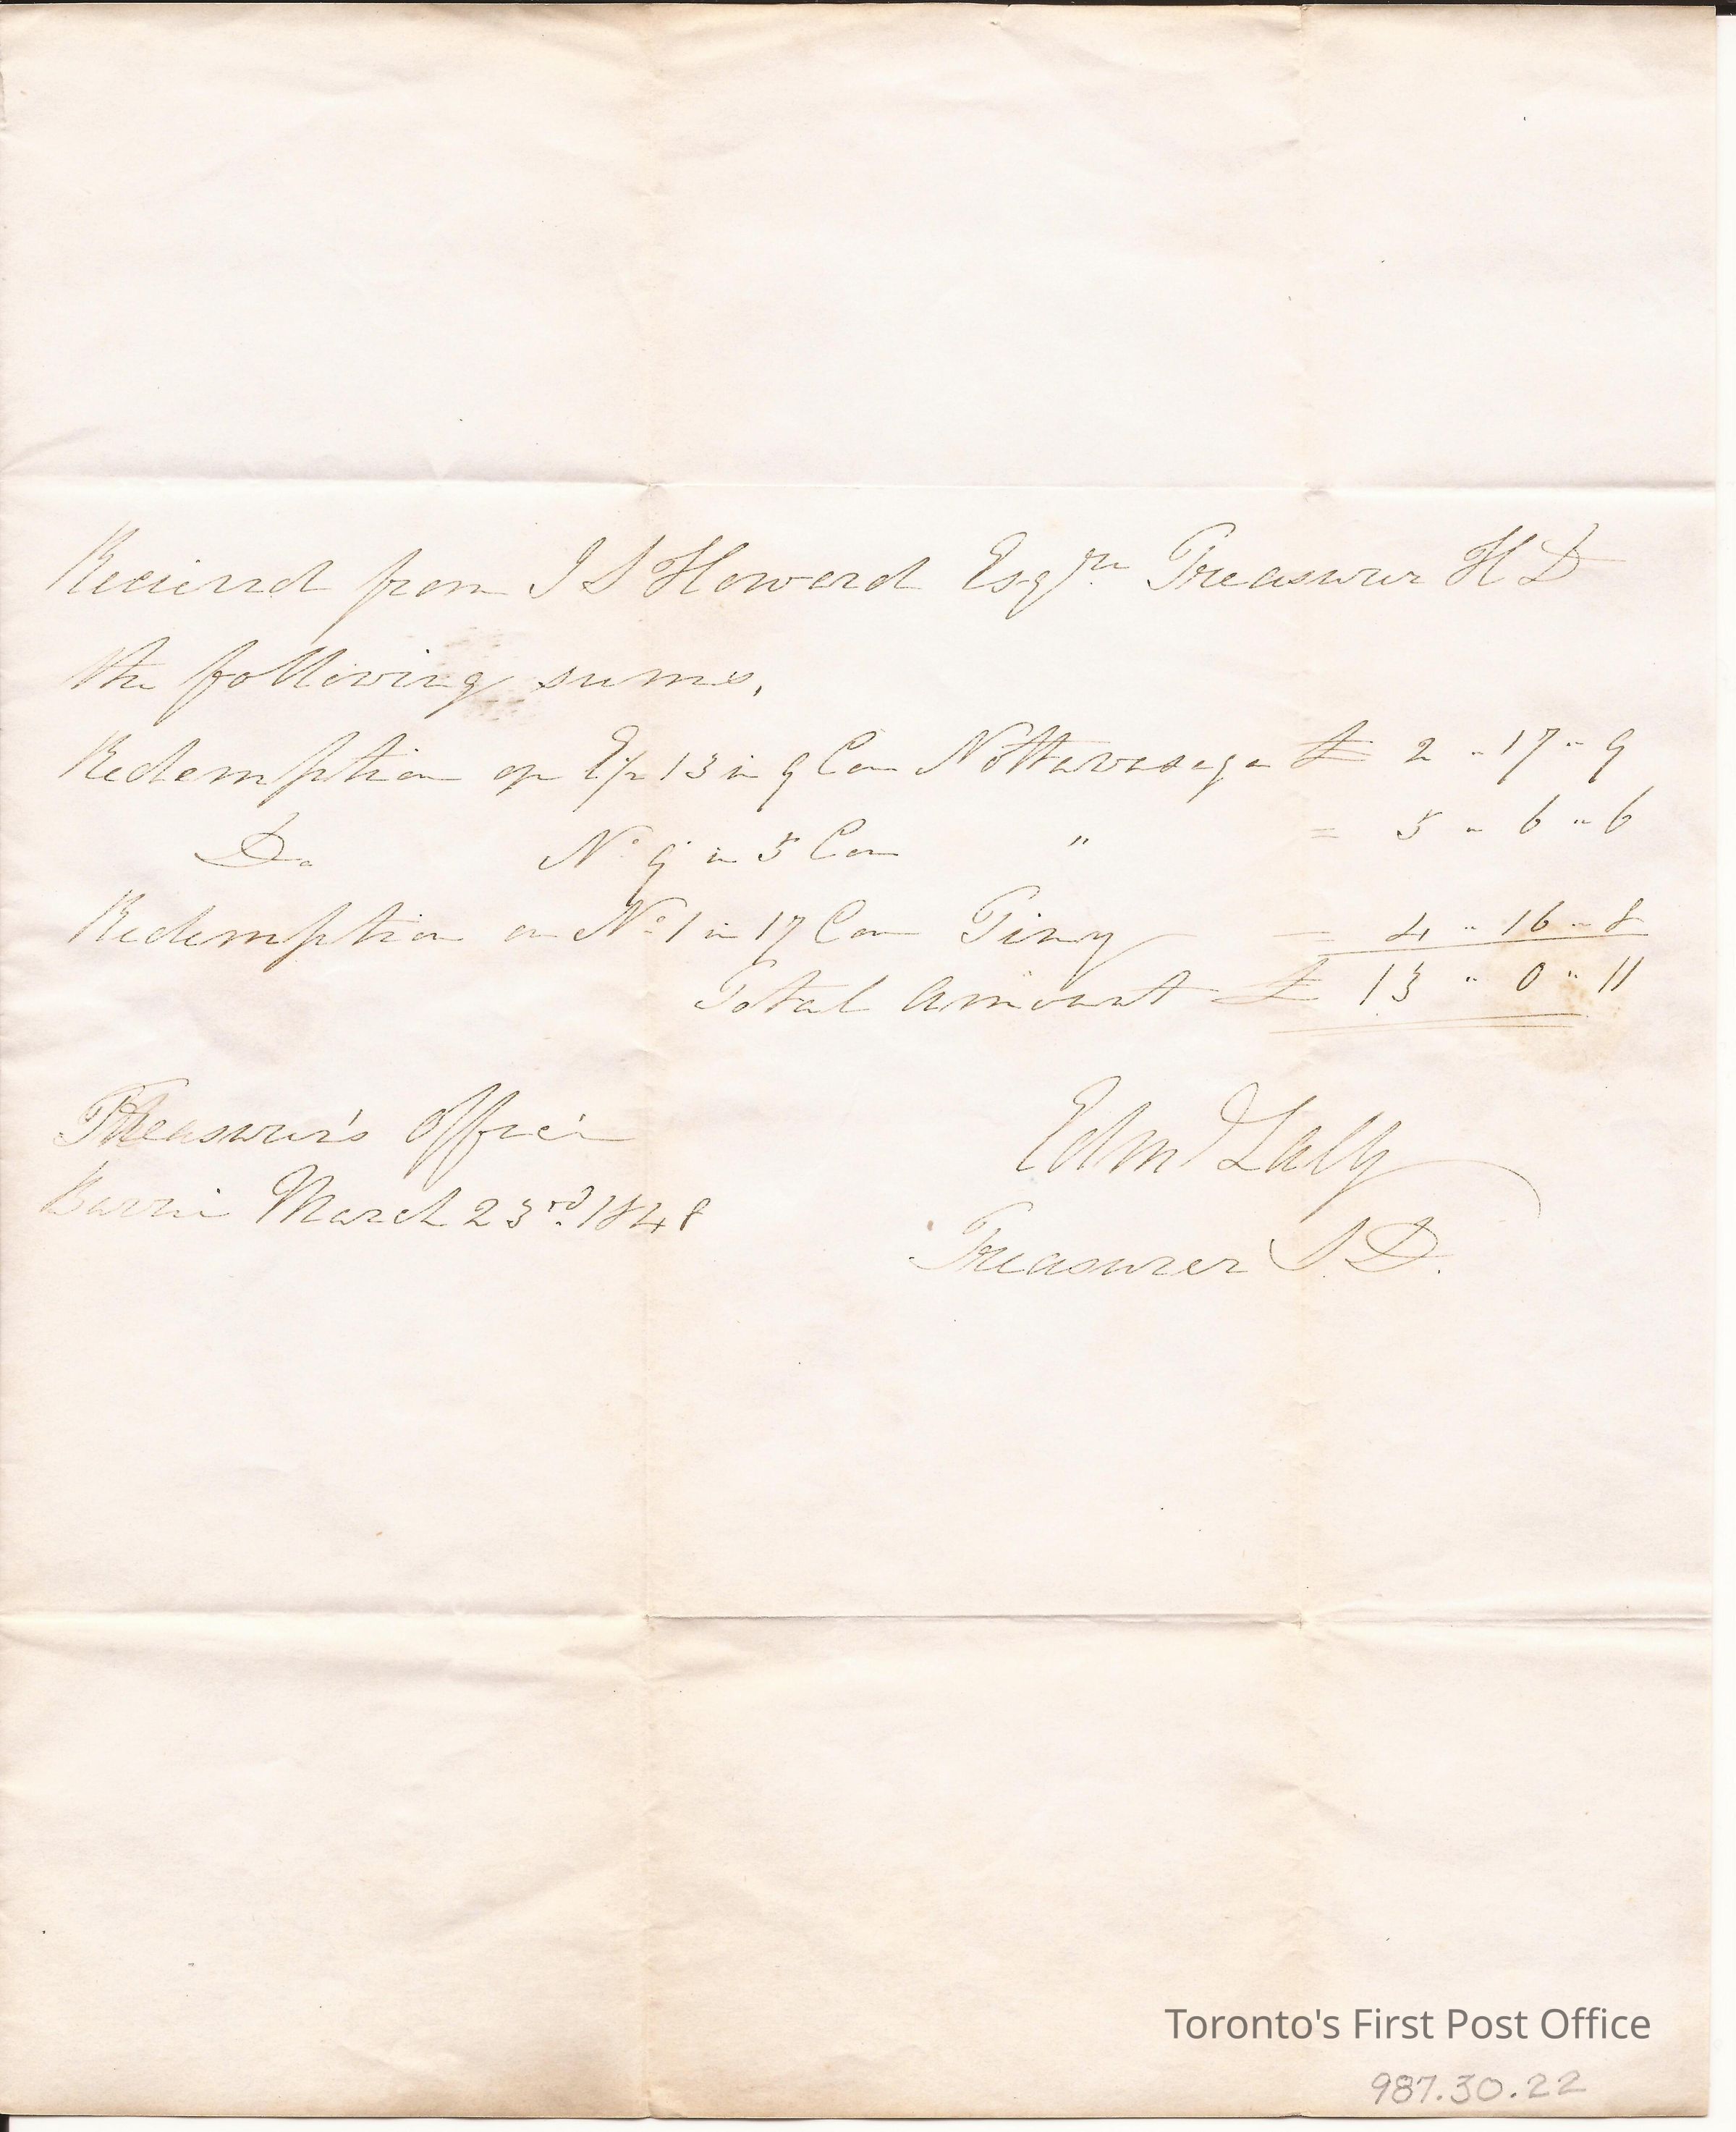 Received from J S Howard Esqre Treasurer H D
the following sums,
Redemption on E½ 13 in 9 Con Nottawasaga £ 2 " 17 " 9
Do No 9 in 5 Con " = 5 " 6 " 6
Redemption on No 1 in 17 Con Tiny = 4 " 16 " 8
Total Amount £ 13 " 0 " 11
Treasurer's Office
Barrie March 23rd. 1848
Edmd Lally
Treasurer S. D.
Toronto's First Post Office
987.30.22